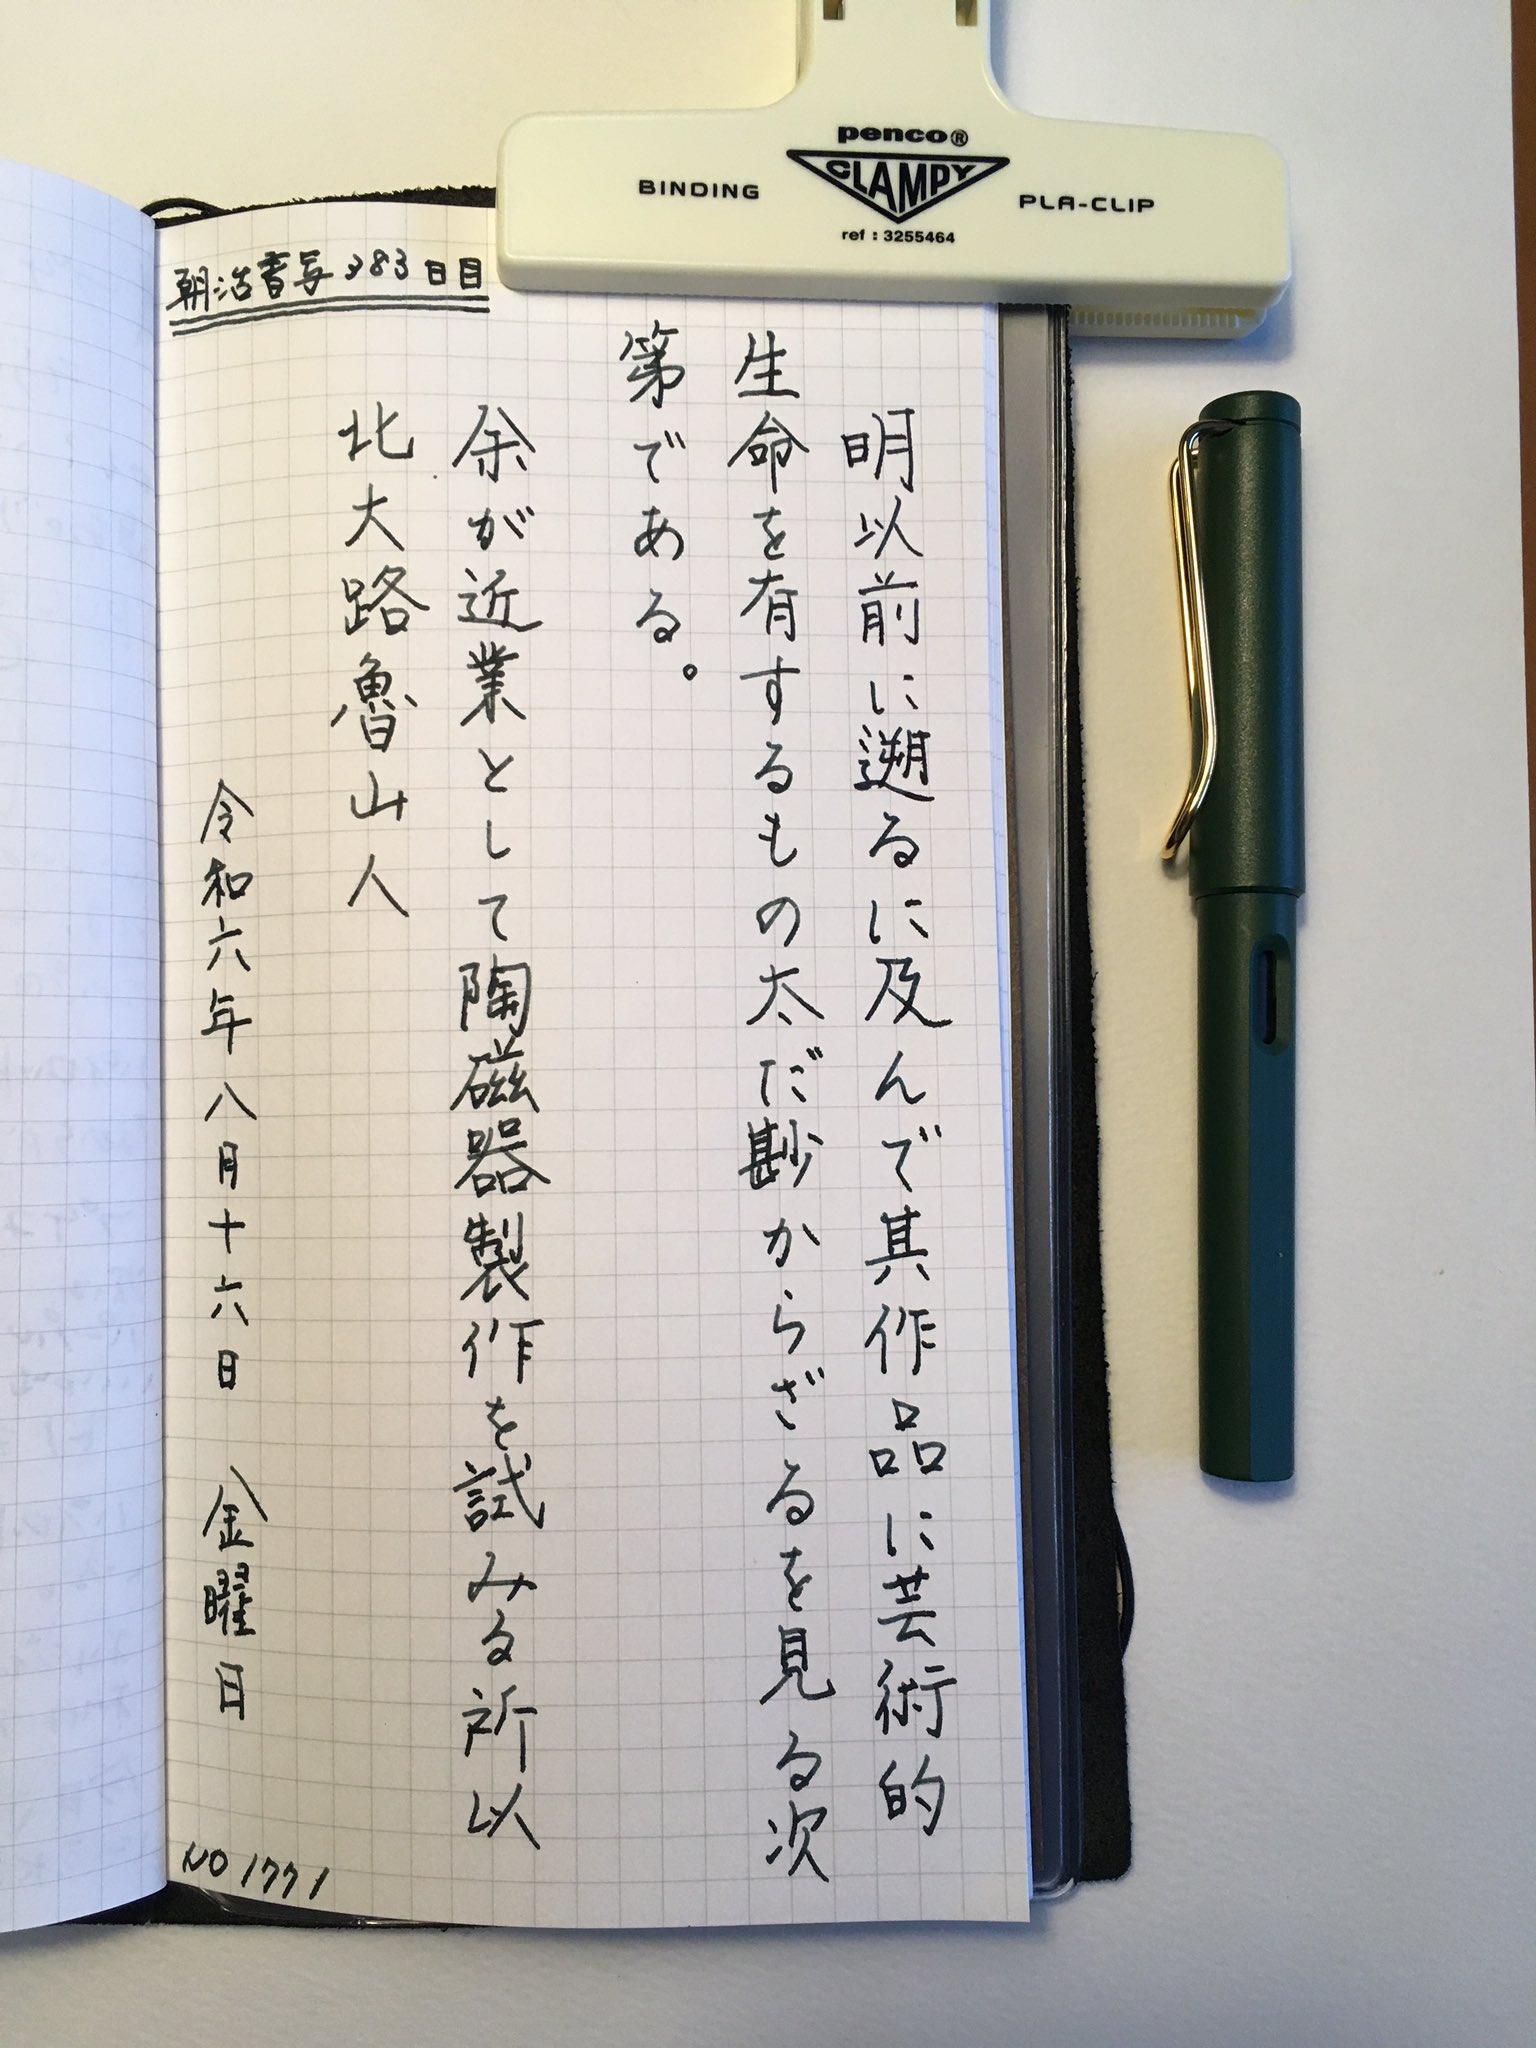 penco®
BINDING CLAMPY PLA-CLIP
ref : 3255464
朝活書写383日目
明以前に遡るに及んで其作品に芸術的
生命を有するもの太だ尠からざるを見る次
第である。
余が近業として陶磁器製作を試みる所以
北大路魯山人
令和六年八月十六日 金曜日
NO 1771